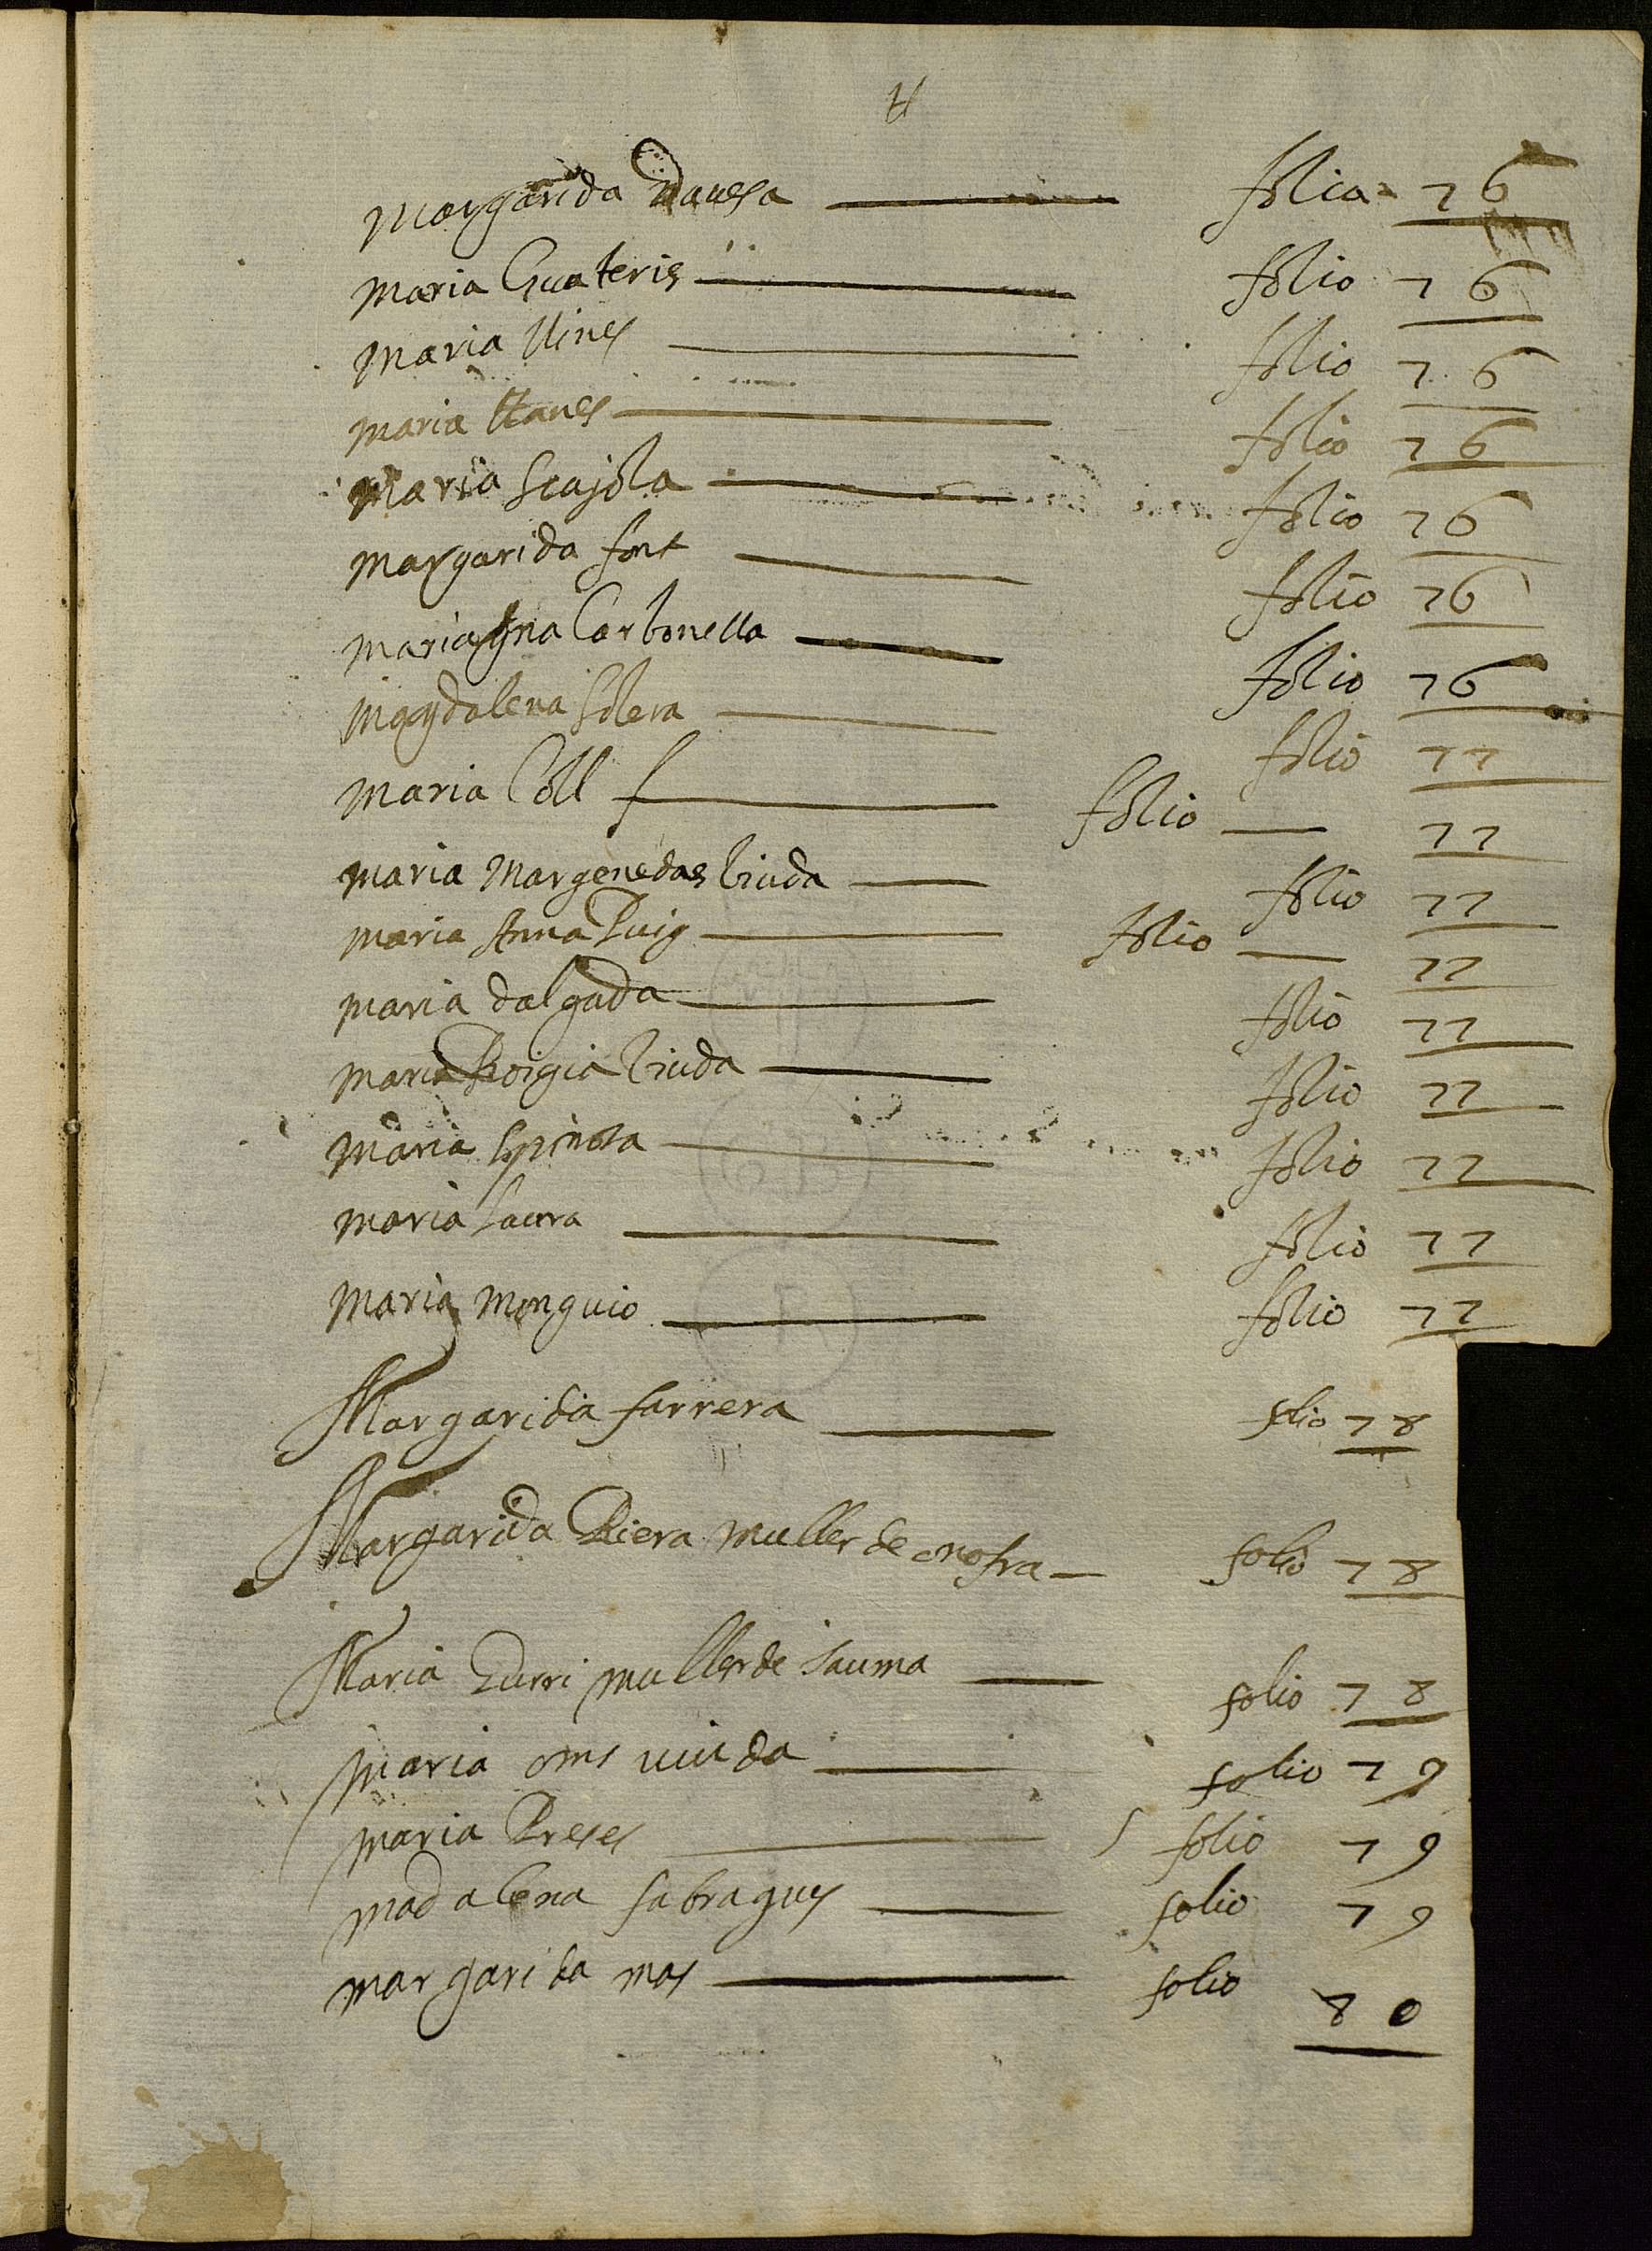 Margarida Dauesa folia 76
Maria Guateris folio 76
Maria llines folio 76
Maria folio 76
Maria Scajola folio 76
Margarida font folio 76
Mariagna Carbonella folio 76
Magdalena Solera folio 77
Maria Coll folio 77
Maria Margenedas viuda folio 77
Maria Anna Puig folio 77
Maria dalgada folio 77
Maria Roigia viuda folio 77
Maria Spinosa folio 77
Maria folio 77
Maria Monguio folio 77
Margarida farrera folio 78
Margarida Riera muller de onofra folio 78
Maria Zurri muller de Jauma folio 78
Maria oms uiuda folio 79
Maria Preses folio 79
Madalena fabragues folio 79
Margarida mas folio 80